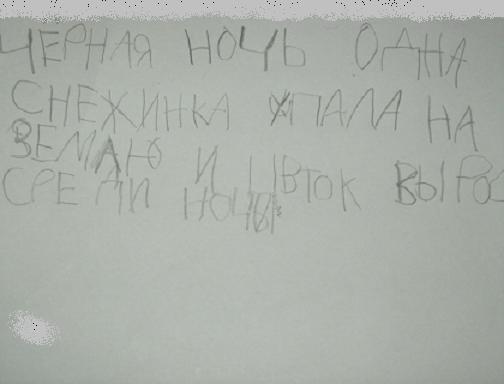 ЧЕРНАЯ НОЧЬ ОДНА
СНЕЖИНКА УПАЛА НА
ЗЕМЛЮ И ЦВТОК ВЫРОС
СРЕДИ НОЧЫ